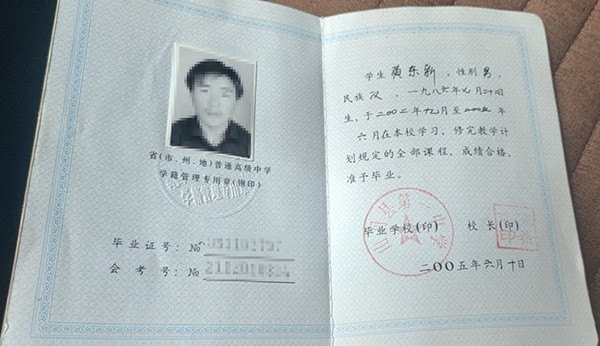 省(市、州、地)普通高级中学
学籍管理专用章(钢印)
毕业证号：№
会考号：№
学生 黄东新，性别 男，
民族 汉，一九八六年七月二十日
生，于二〇〇二年九月至二〇〇五年
六月在本校学习，修完教学计
划规定的全部课程，成绩合格，
准予毕业。
毕业学校(印) 校长(印)
县第一中学
二〇〇五年六月十日